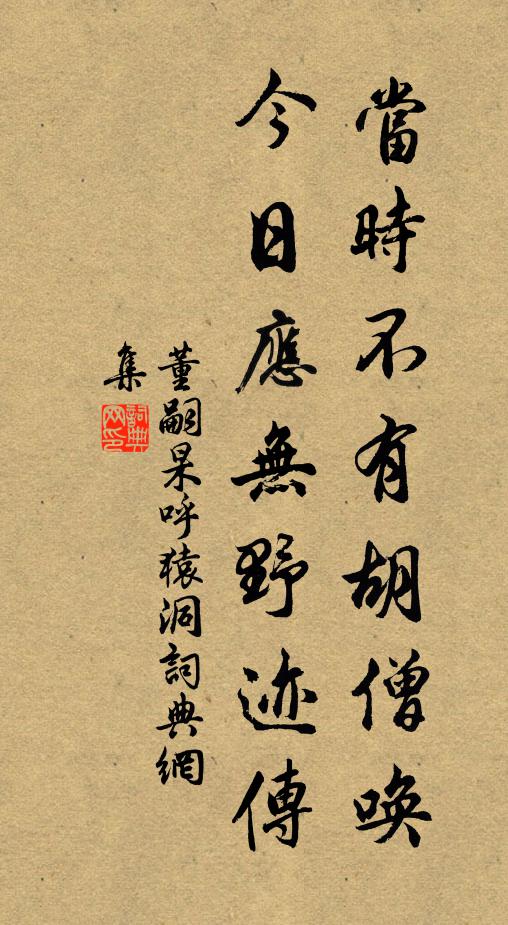 當時不有胡僧喚
今日應無野迹傳
董嗣杲呼猿洞詞典網
集
詞典
网印